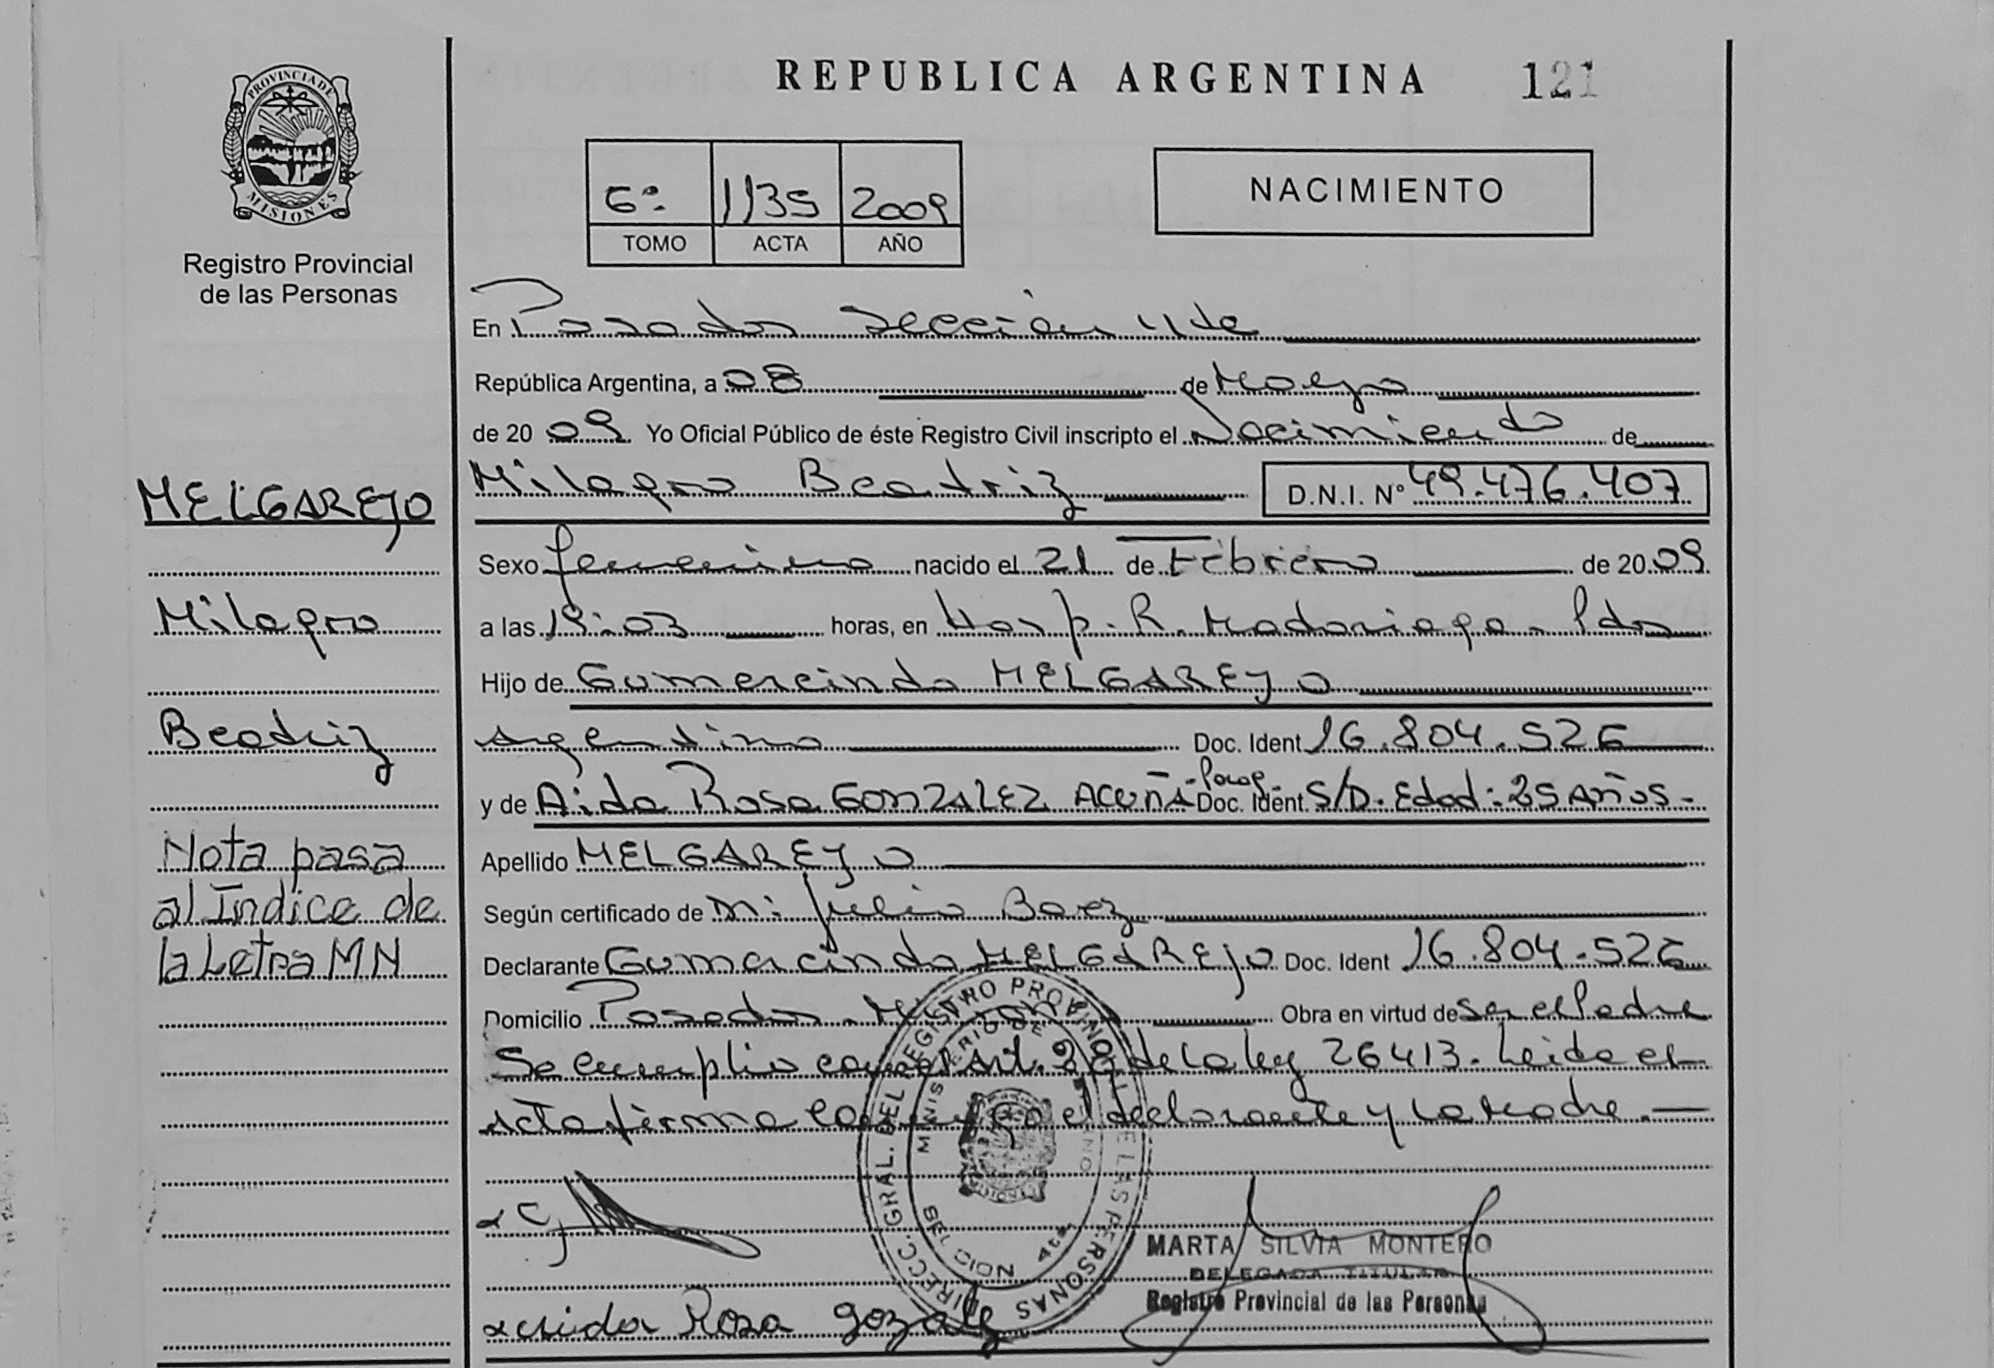 REPUBLICA ARGENTINA 121
PROVINCIA DE
MISIONES
Registro Provincial
de las Personas
6º 1135 2009
TOMO ACTA AÑO
NACIMIENTO
En Posadas Sección 4
República Argentina, a 08 de Mayo
de 20 09 Yo Oficial Público de éste Registro Civil inscripto el Nacimiento de
Milagro Beatriz D.N.I. Nº 49.476.407
Sexo femenino nacido el 21 de Febrero de 2009
a las 19:03 horas, en Hosp. R. Madariaga - Pdas
Hijo de Gumercindo MELGAREJO
Argentino Doc. Ident 16.804.526
y de Aida Rosa GONZALEZ ACUÑA - Parag - Doc. Ident S/D. Edad: 25 Años.-
Apellido MELGAREJO
Según certificado de Julio Baez
Declarante Gumercindo MELGAREJO Doc. Ident 16.804.526
Domicilio Posadas Obra en virtud de ser el Padre
Se cumplio con el Art. de la ley 26413. Leida el
acta firma el declarante y la Madre.
MELGAREJO
Milagro
Beatriz
Nota pasa
al Índice de
la Letra MN
DIRECC. GRAL. DEL REGISTRO PROVINCIAL DE LAS PERSONAS
MINISTERIO DE
MARTA SILVIA MONTERO
DELEGADA TITULAR
Registro Provincial de las Personas
Rosa